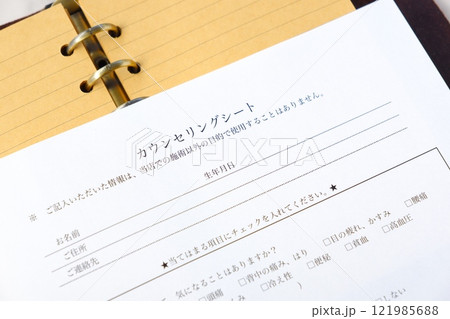 カウンセリングシート
※ ご記入いただいた情報は、当店での施術以外の目的で使用することはありません。
お名前 生年月日
ご住所
ご連絡先
★当てはまる項目にチェックを入れてください。★
気になることはありますか?
□頭痛 □背中の痛み、はり □目の疲れ、かすみ □腰痛
□冷え性 □便秘 □貧血 □高血圧
)
しない
121985688